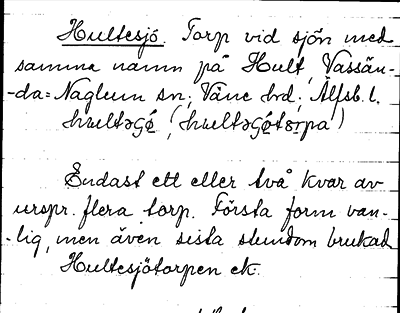 Hultesjö. Torp vid sjön med
samma namn på Hult, Vassän-
-da=Naglum sn; Väne hd; Älfsb. l.
hultəGö (hultəGötorpa)
Endast ett eller två kvar av
urspr. flera torp. Första form van-
-lig, men även sista stundom brukad
Hultesjötorpen etc.